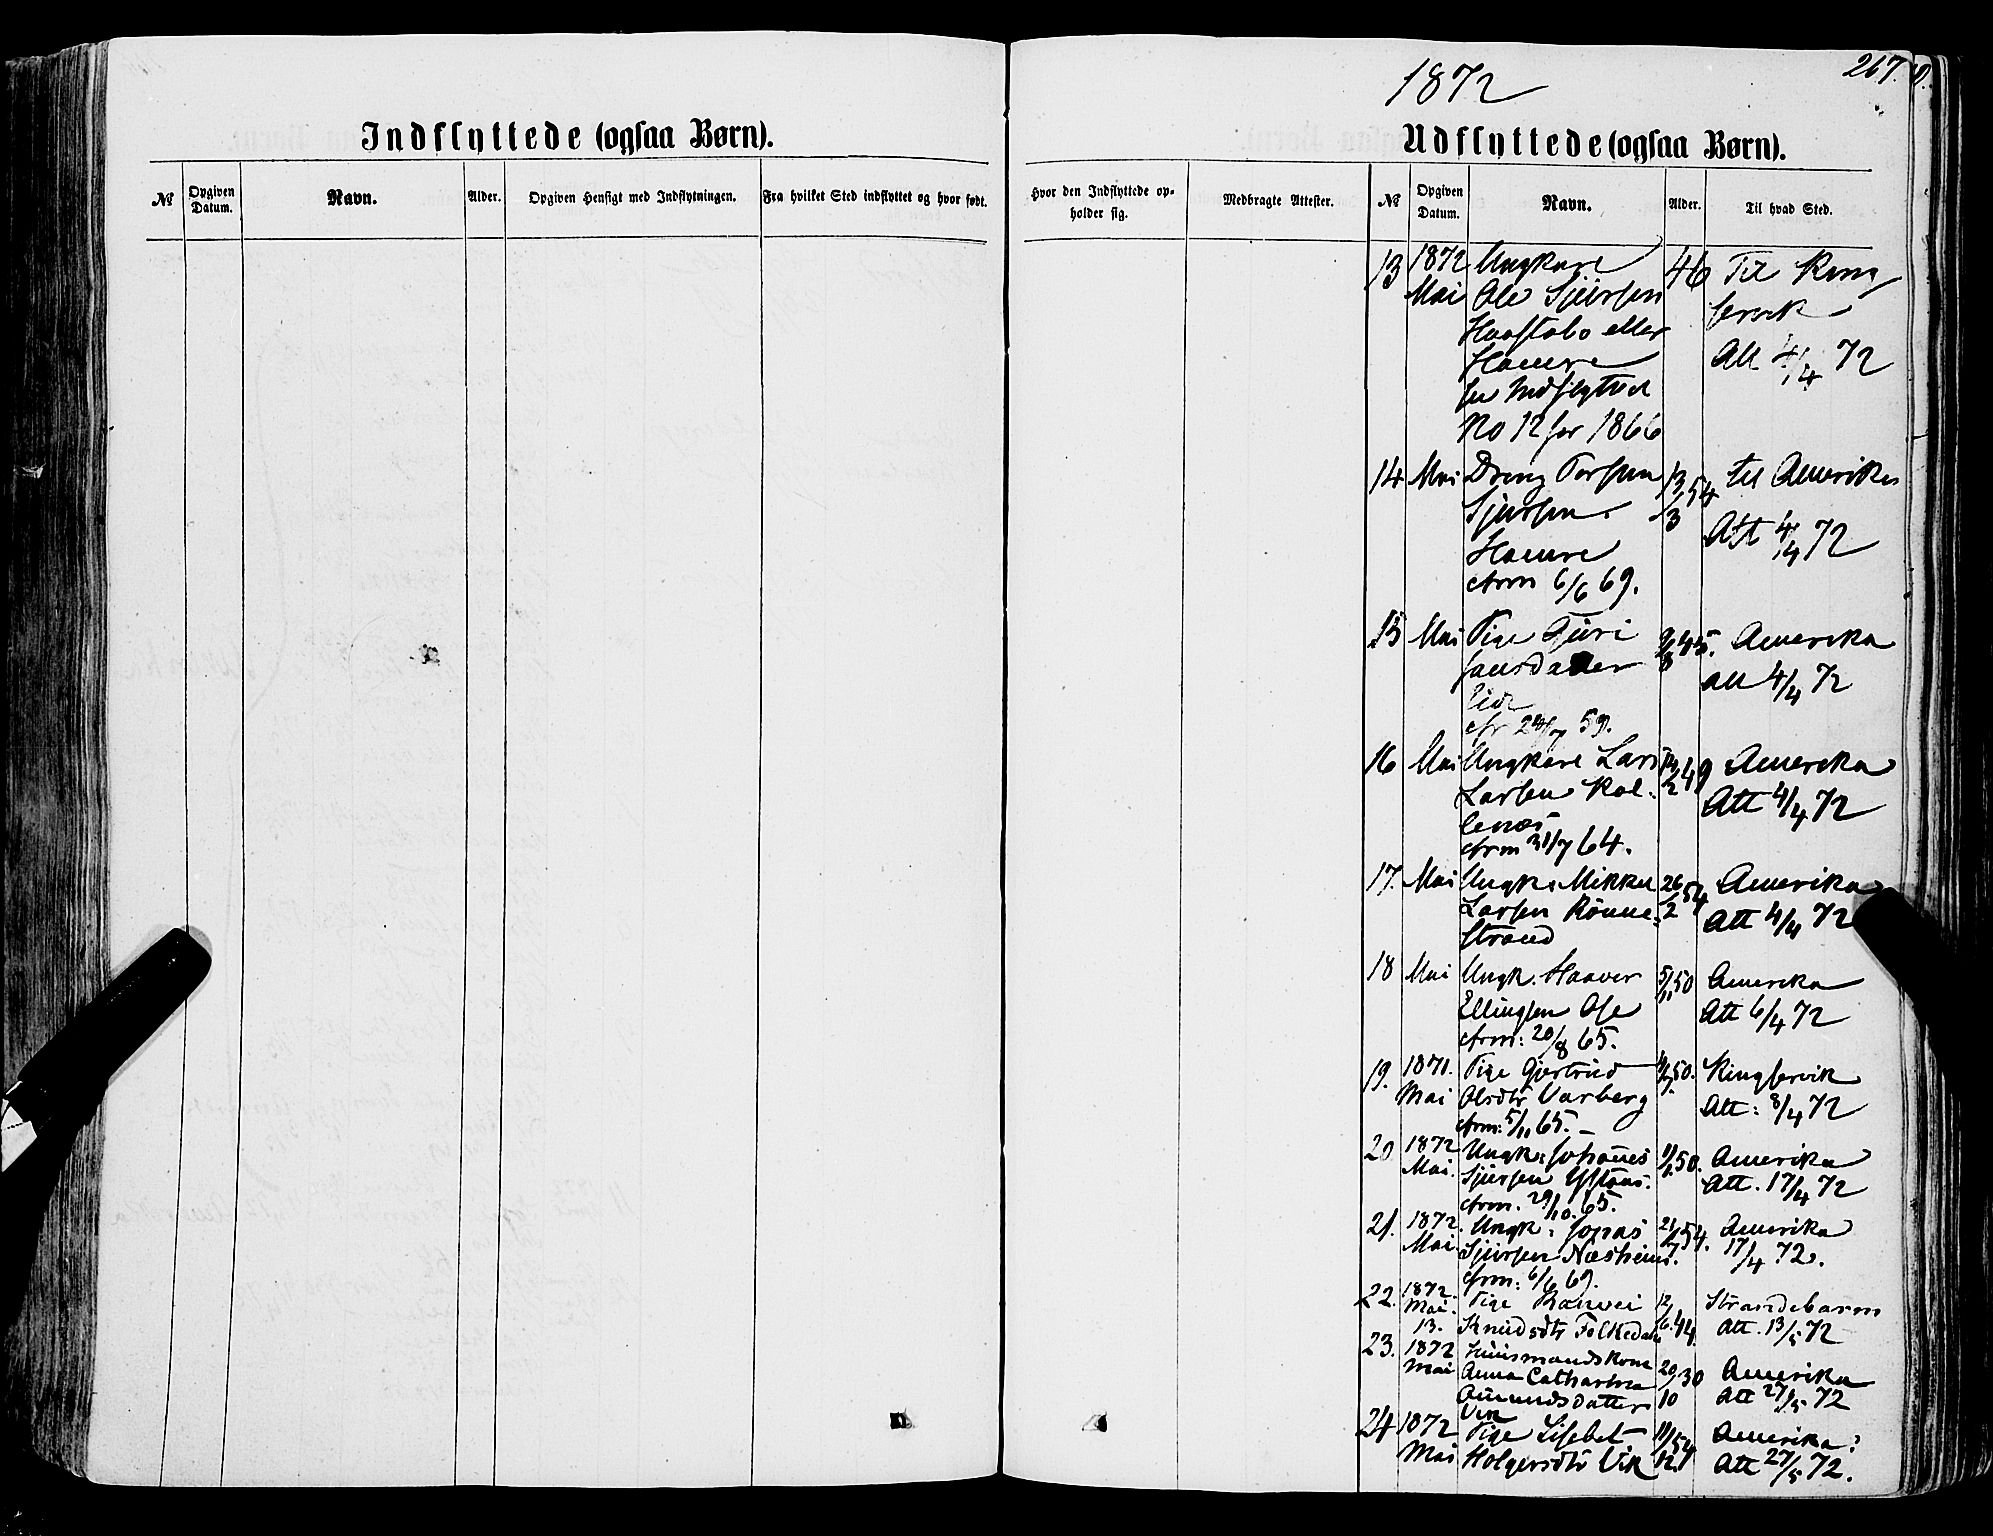 267.
1872
Indflyttede (ogsaa Børn).
Udflyttede (ogsaa Børn).
№
Opgiven Datum.
Navn.
Alder.
Opgiven Hensigt med Indflytningen.
Fra hvilket Sted indflyttet og hvor født.
Hvor den Indflyttede opholder sig.
Medbragte Attester.
№
Opgiven Datum.
Navn.
Alder.
Til hvad Sted.
13 1872 Ungkarl 46 Til King
Mai Ole Sjursen servik
Haastabo eller
Hamre Att 4/4 72
Indflyttet
No 12 for 1866
14 Mai Dreng Torsten 13/3 54 til Amerika
Sjursen Att 4/4 72
Hamre
cfrm 6/6 69.
15 Mai Pige Guri 45. Amerika
datter att 4/4 72
Lid
cfr 24/7 59.
16 Mai Ungkarl Lars 49 Amerika
Larsen Kol- Att 4/4 72
lenæs
cfrm 31/7 64.
17. Mai Ungk: Mikkel 26/2 54 Amerika
Larsen Rønne- Att 4/4 72
strand
18 Mai Ungk. Haaver 5/11 50 Amerika
Ellingsen Ase Att 6/4 72
cfrm: 20/8 65.
19. 1871. Pige Gjertrud 50. Kingservik
Mai Olsdtr Varberg Att: 8/4 72
cfrm: 5/11 65.
20 1872 Ungk: Johanes 50. Amerika
Mai. Sjursen Ystaas. Att. 17/4 72
cfrm. 29/10. 65.
21. 1872. Ungk: Jonas 21/7 54. Amerika
Mai Sjursen Næsheim. 17/4 72.
cfrm: 6/6 69.
22. 1872. Pige Ranvei 12/6. 44 Strandebarm
Mai. 13. Knudsdtr Folkedal Att. 13/5 72
23. 1872 Huusmandskone 20/10 30 Amerika
Mai Anna Catharina Att 27/5 72
Amundsdatter
Vik
24 1872 Pige Lisebet 11/12 54 Amerika:
Mai Holgersdtr Vik Att 27/5 72.